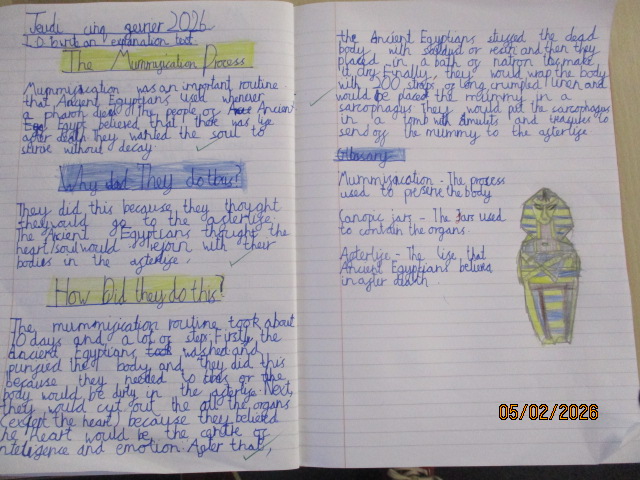 Jeudi cinq 2026
L.O. write an explanation text
The Mummification Process
Mummification was an important routine
that Ancient Egyptians used whenever
a pharoh died. The people of Ancient
Egypt believed that there was life
after death. They wanted the soul to
thrive without decay.
Why did They do this?
They did this because they thought
they would go to the afterlife.
The Ancient Egyptians thought the
heart/soul would rejoin with their
bodies in the afterlife.
How Did they do this?
The mummification routine took about
70 days and a lot of steps. Firstly, the
ancient Egyptians washed and
purified the body and they did this
because they needed to or the
body would be dirty in the afterlife. Next,
they would cut out the all the organs
(except the heart) because they believed
the heart would be the centre of
intelligence and emotion. After that,
the Ancient Egyptians stuffed the dead
body with or resin and then they
placed in a bath of natron to make
it dry. Finally, they would wrap the body
with 200 strips of long crumpled linen and
would be placed the mummy in a
sarcophagus. They would put the sarcophagus
in a tomb with Amulets and treasures to
send off the mummy to the afterlife
Glossary
Mummification - The process
used to preserve the body
Canopic jars - The Jars used
to contain the organs
Afterlife - The life that
Ancient Egyptians believe
in after death.
05/02/2026